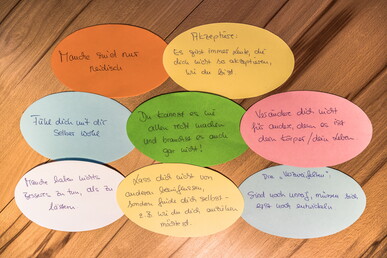 Manche sind nur
neidisch
Akzeptiere:
Es gibt immer Leute, die
dich nicht so akzeptieren,
wie du bist
Fühl dich mit dir
selber wohl
Du kannst es nie
allen recht machen
und brauchst es auch
gar nicht!
Verändere dich nicht
für andere, denn es ist
dein Körper/dein Leben.
Manche haben nichts
besseres zu tun, als zu
lästern
Lass dich nicht von
anderen beeinflussen,
sondern finde dich selbst -
z.B. wie du dich anziehen
möchtest.
Die "Vorverfechter"
sind noch unreif, müssen sich
erst noch entwickeln